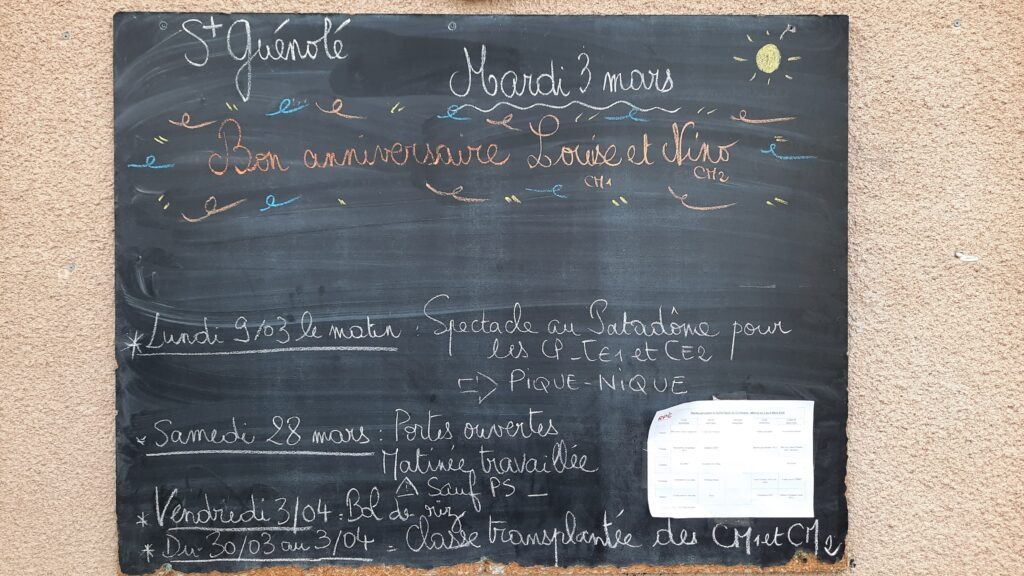 St Guénolé
Mardi 3 mars
Bon anniversaire Louise et Nino
CM1 CM2
* Lundi 9/03 le matin : Spectacle au Patadôme pour
les CP_CE1 et CE2
⇨ PIQUE-NIQUE
Samedi 28 mars : Portes ouvertes
Matinée travaillée
△ Sauf PS _
* Vendredi 3/04 : Bol de riz
* Du 30/03 au 3/04 = Classe transplantée des CM1 et CM2